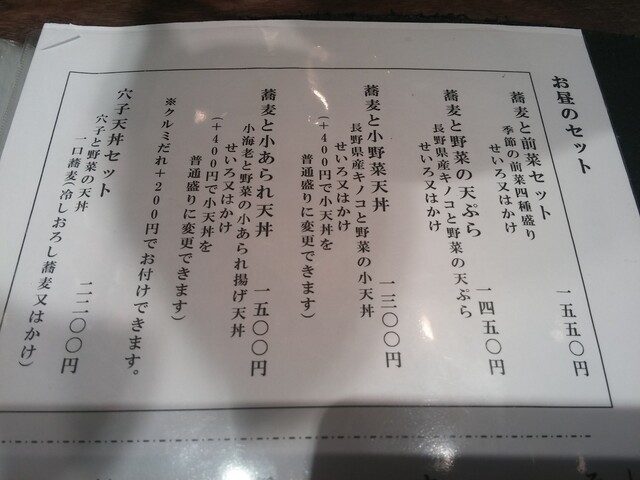 お昼のセット
蕎麦と前菜セット 一五五〇円
季節の前菜四種盛り
せいろ又はかけ
蕎麦と野菜の天ぷら 一四五〇円
長野県産キノコと野菜の天ぷら
せいろ又はかけ
蕎麦と小野菜天丼 一三〇〇円
長野県産キノコと野菜の小天丼
せいろ又はかけ
(+400円で小天丼を
普通盛りに変更できます)
蕎麦と小あられ天丼 一五〇〇円
小海老と野菜の小あられ揚げ天丼
せいろ又はかけ
(+400円で小天丼を
普通盛りに変更できます)
※クルミだれ+200円でお付けできます。
穴子天丼セット 二二〇〇円
穴子と野菜の天丼
一口蕎麦(冷しおろし蕎麦又はかけ)